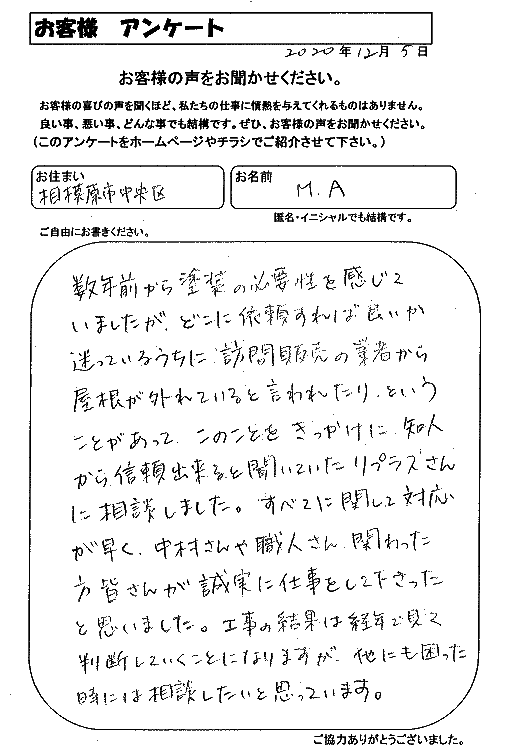 お客様 アンケート
2020年12月5日
お客様の声をお聞かせください。
お客様の喜びの声を聞くほど、私たちの仕事に情熱を与えてくれるものはありません。
良い事、悪い事、どんな事でも結構です。ぜひ、お客様の声をお聞かせください。
(このアンケートをホームページやチラシでご紹介させて下さい。)
お住まい
相模原市中央区
お名前
M.A
匿名・イニシャルでも結構です。
ご自由にお書きください。
数年前から塗装の必要性を感じて
いましたが、どこに依頼すれば良いか
迷っているうちに訪問販売の業者から
屋根が外れていると言われたり、という
ことがあって、このことをきっかけに、知人
から信頼出来ると聞いていたリプラスさん
に相談しました。すべてに関して対応
が早く、中村さんや職人さん、関わった
方皆さんが誠実に仕事をして下さった
と思いました。工事の結果は経年で見て
判断していくことになりますが、他にも困った
時には相談したいと思っています。
ご協力ありがとうございました。